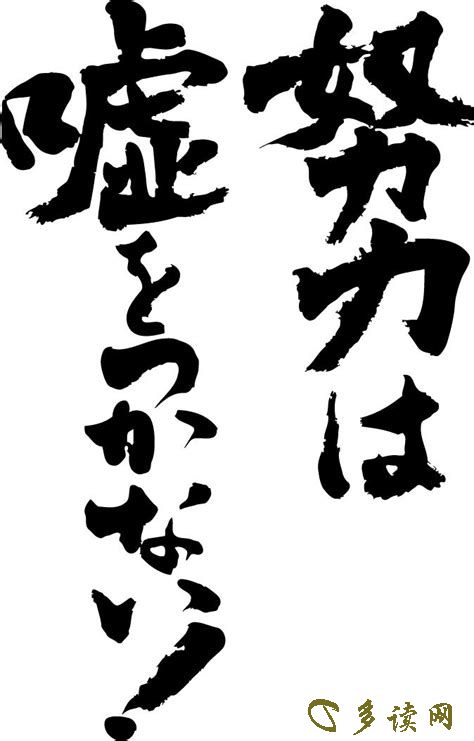 努力は
嘘をつかない!
多读网